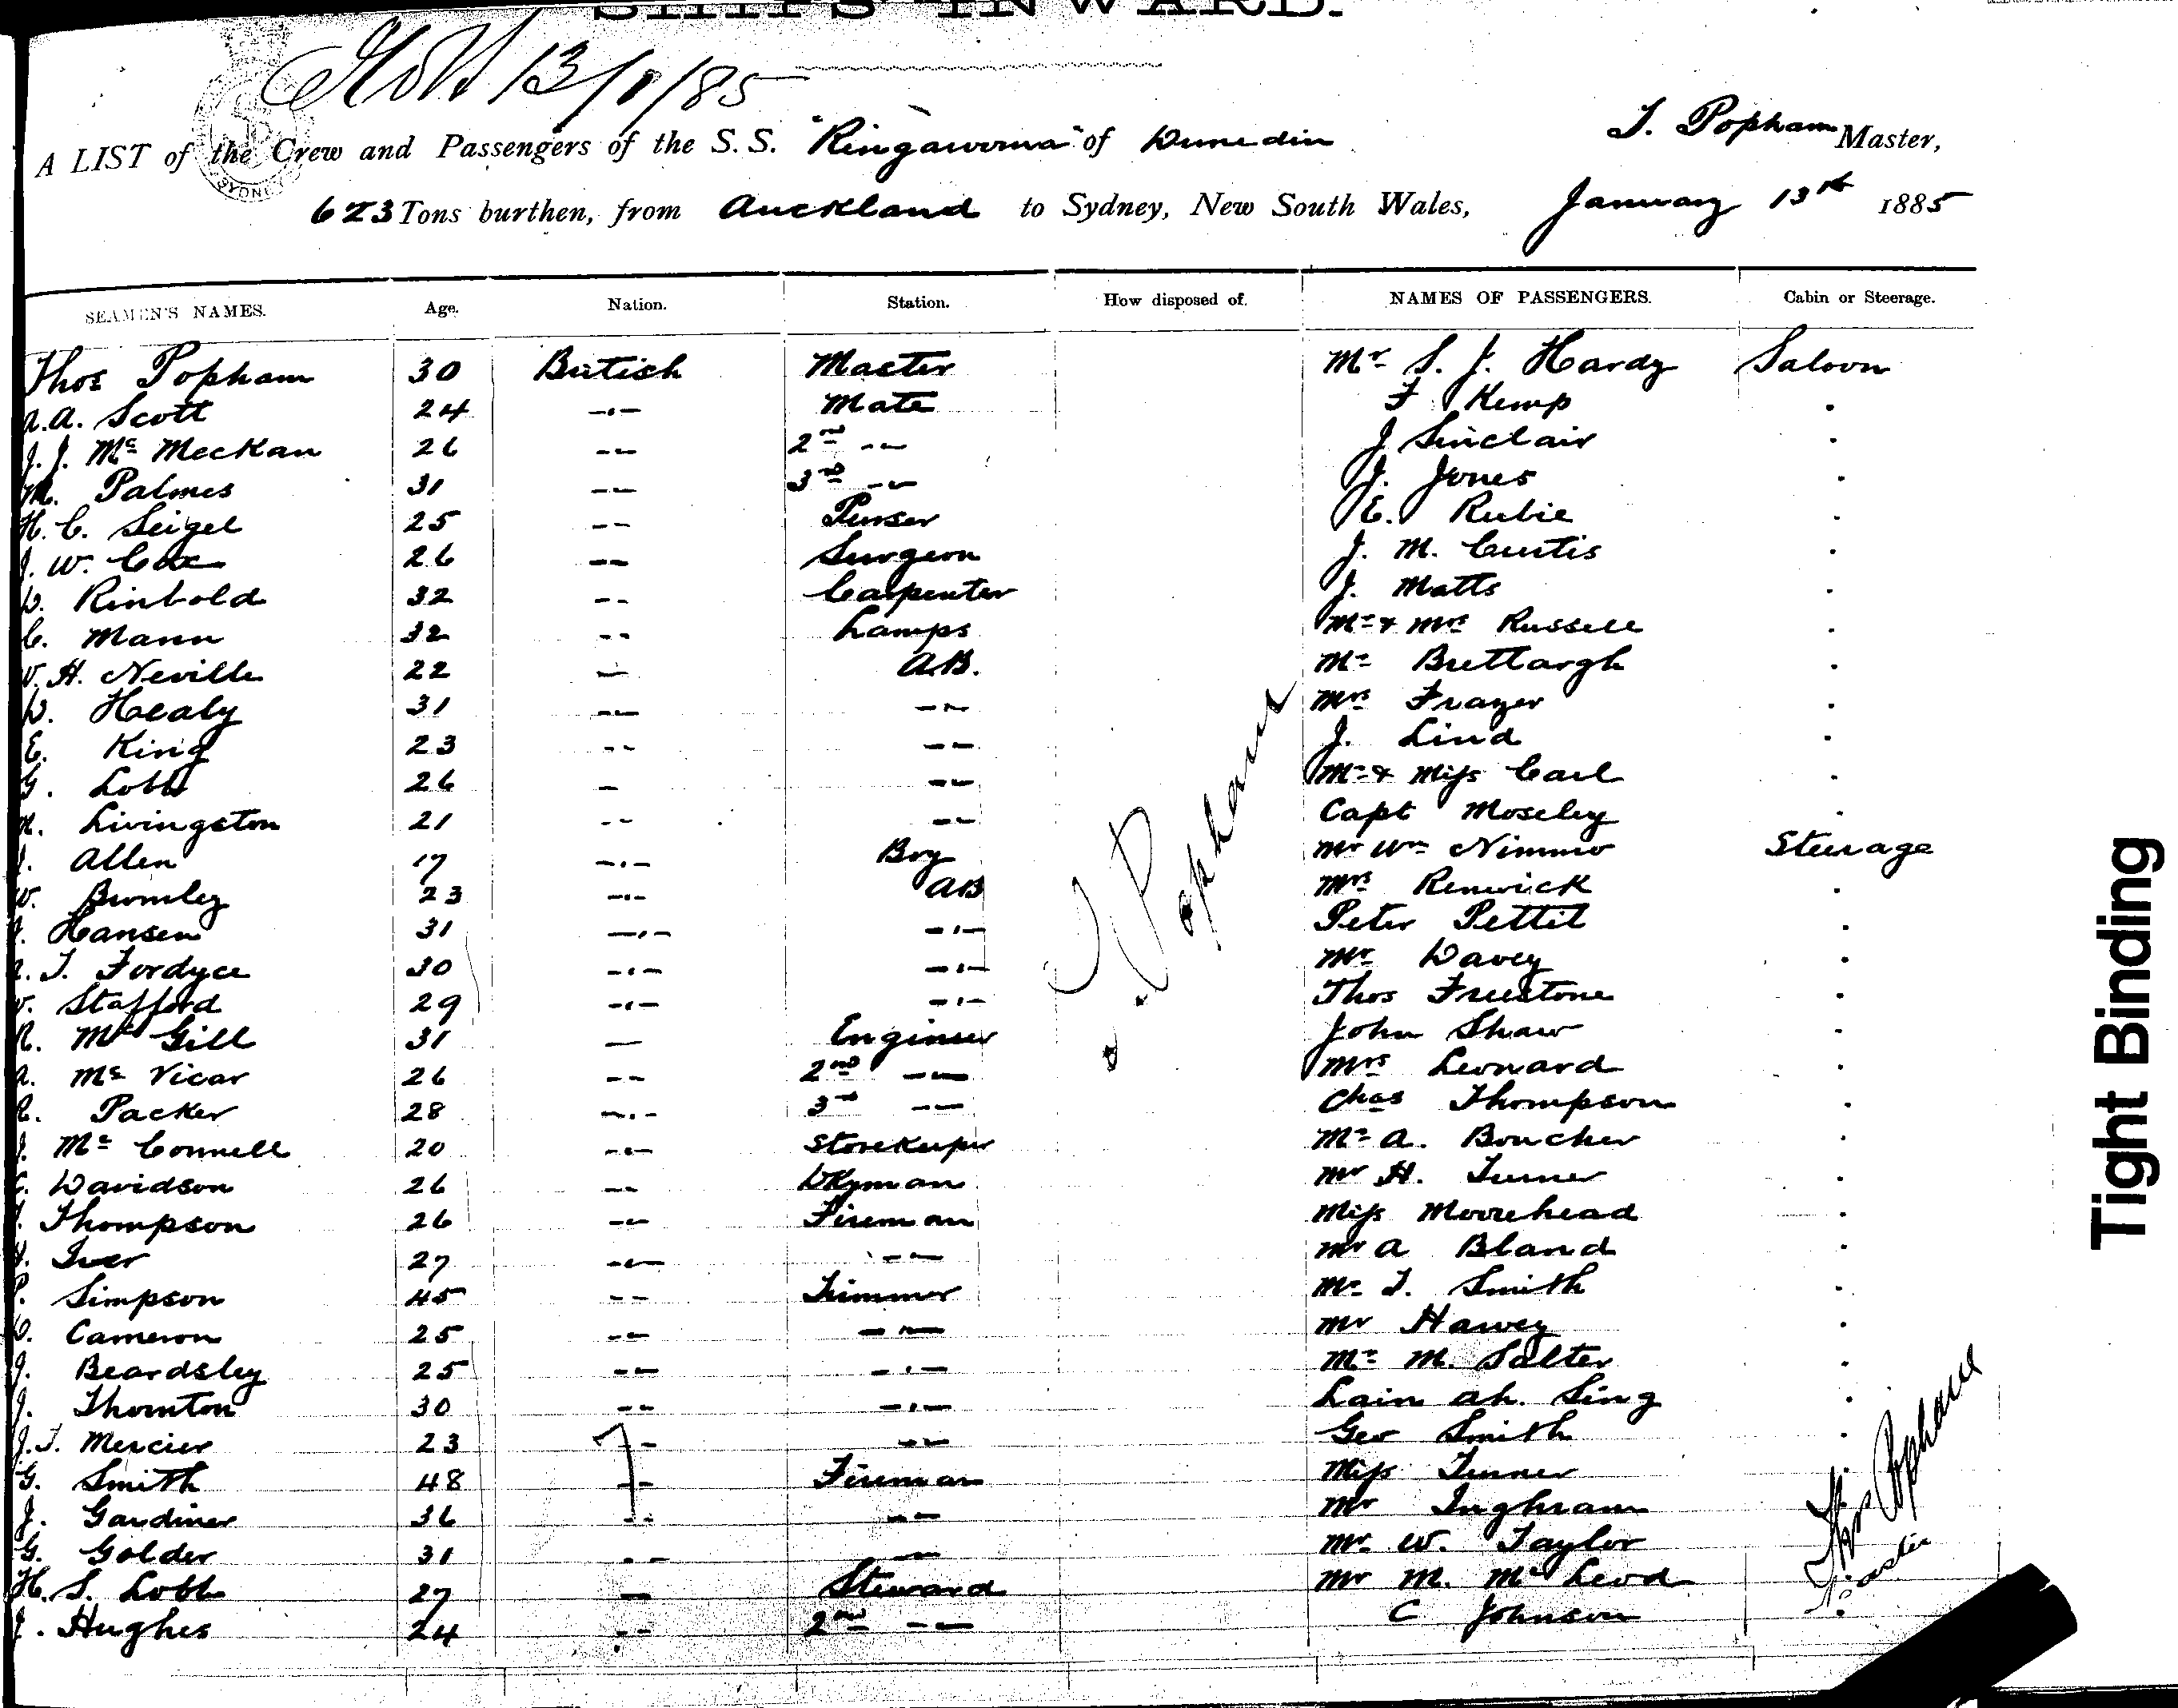 SHIPS INWARD.
13/1/85
SYDNEY
A LIST of the Crew and Passengers of the S.S. "Ringarooma" of Dunedin T. Popham Master,
623 Tons burthen, from Auckland to Sydney, New South Wales, January 13th 1885
SEAMEN'S NAMES. Age. Nation. Station. How disposed of. NAMES OF PASSENGERS. Cabin or Steerage.
Thos Popham 30 British Master Mr S. J. Hardy Saloon
A. A. Scott 24 -.- Mate F Kemp .
J. J. Mc Meckan 26 -- 2nd -- J Sinclair .
M. Palmes 31 -- 3rd -- J. Jones .
H. C. Seigel 25 -- Purser E. Rubie .
J. W. Cox 26 -- Surgeon J. M. Curtis .
D. Rinbold 32 -- Carpenter J. Matts .
C. Mann 32 -- Lamps Mr & Mrs Russell .
W. H. Neville 22 - A.B. Mr Buttargh .
D. Healy 31 -- -- Mrs Frazer .
E. King 23 -- -- J. Lind .
G. Lobb 26 - -- Mr & Miss Carl .
Livingston 21 -- -- Capt Moseley .
Allen 17 -.- Boy Mr Wm Nimmo Steerage
W. Bromley 23 -.- AB Mrs Renwick .
Hansen 31 -.- -.- Peter Pettit .
T. Fordyce 30 -.- -.- Mr Davey .
W. Stafford 29 -.- -.- Thos Freestone .
R. Mc Gill 31 - Engineer John Shaw .
A. Mc Vicar 26 -- 2nd -- Mrs Leonard .
Packer 28 -.- 3rd -- Chas Thompson .
J. Mc Connell 20 -.- Storekeeper Mr A. Boucher .
Davidson 26 -- Dkyman Mr H. Turner .
Thompson 26 -- Fireman Miss Moorehead .
Iver 27 -- -- Mr A Bland .
P. Simpson 45 -- Trimmer Mr T. Smith .
Cameron 25 -- -- Mr Harvey .
J. Beardsley 25 -- -.- Mr M. Salter .
J. Thornton 30 -- -.- Lain ah. Sing .
J. T. Mercier 23 -- -- Geo Smith .
G. Smith 48 -- Fireman Miss Turner .
J. Gardiner 36 -- -- Mr Inghram
G. Golder 31 -- - Mr W. Taylor
H. S. Lobb 27 - Steward Mr M. McLeod
J. Hughes 24 -- 2nd -- C Johnson
T Popham
Thos Popham
Master
Tight Binding